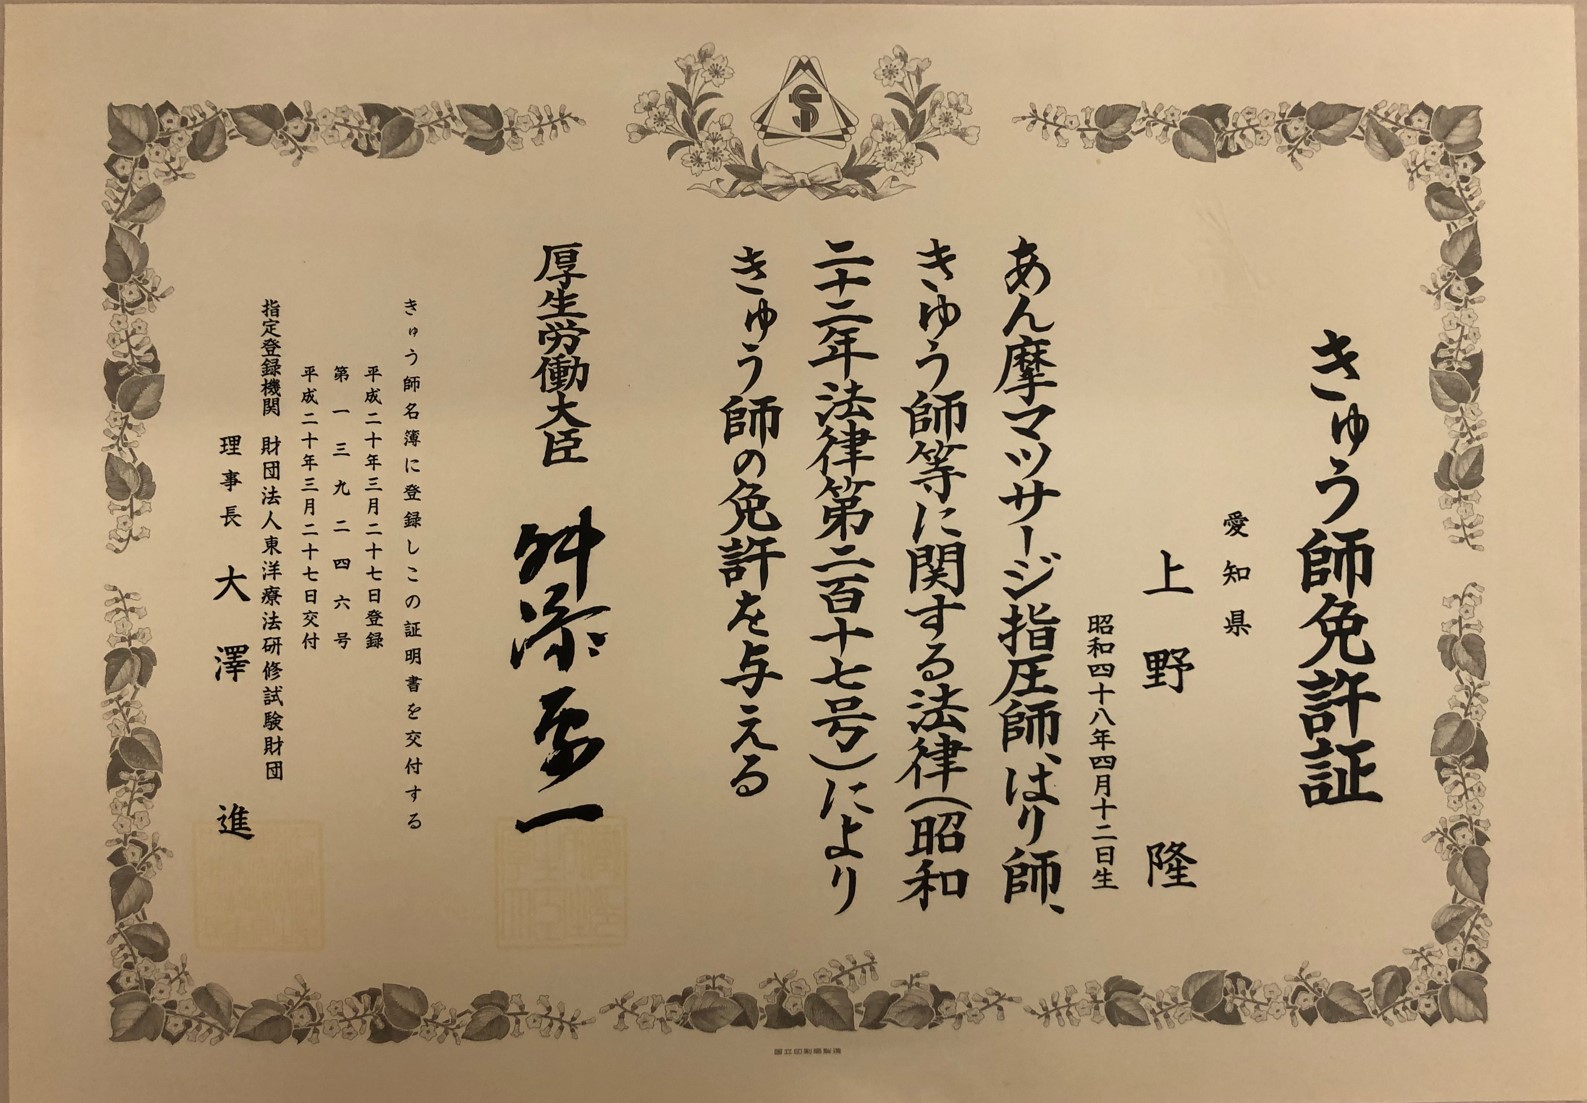 きゅう師免許証
愛知県
上野 隆
昭和四十八年四月十二日生
あん摩マツサージ指圧師、はり師、
きゆう師等に関する法律（昭和
二十二年法律第二百十七号）により
きゅう師の免許を与える
厚生労働大臣 舛添要一
きゅう師名簿に登録しこの証明書を交付する
平成二十年三月二十七日登録
第一三九二四六号
平成二十年三月二十七日交付
指定登録機関 財団法人東洋療法研修試験財団
理事長 大澤 進
国立印刷局製造